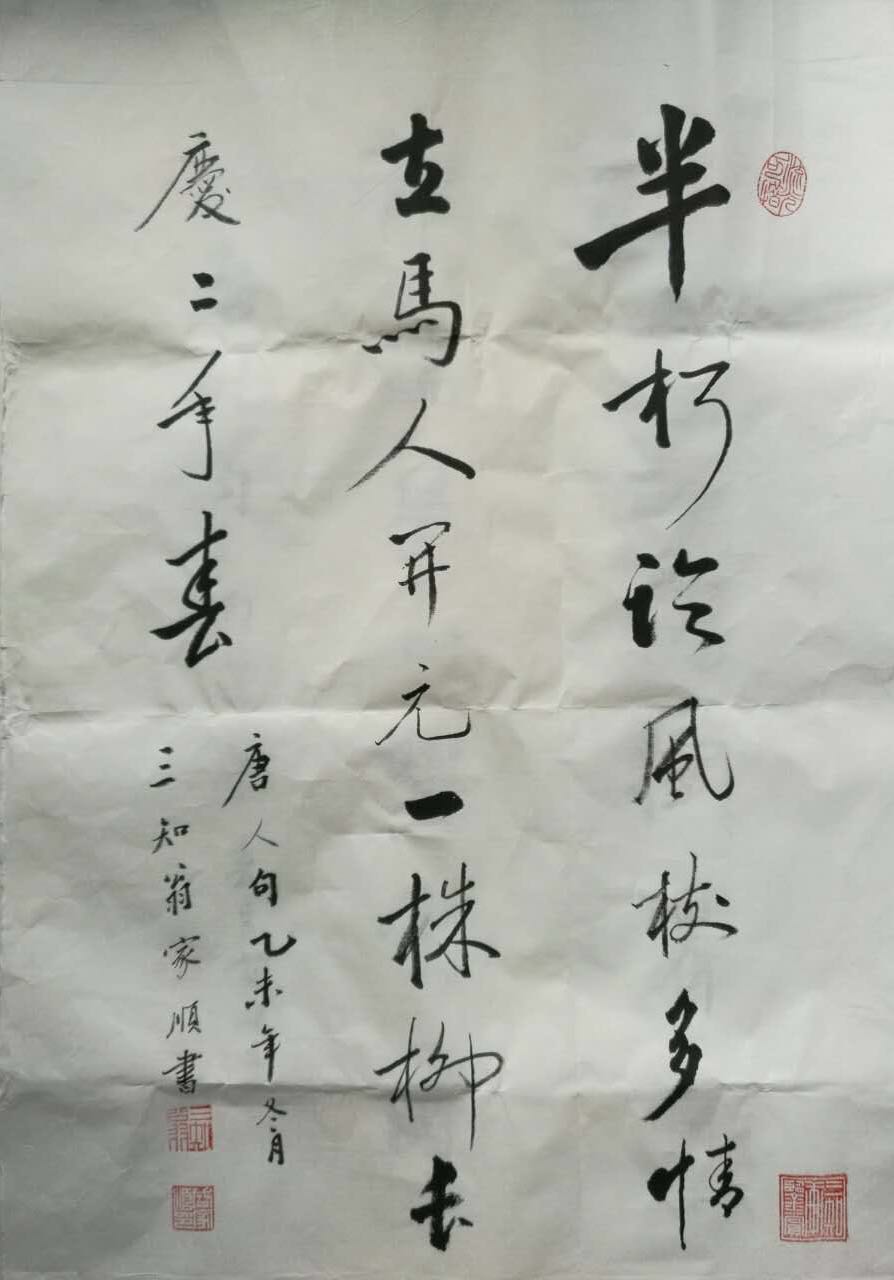 半朽臨風枝多情
立馬人開元一株柳長
慶二年春
唐人句乙未年冬月
三知翁家順書